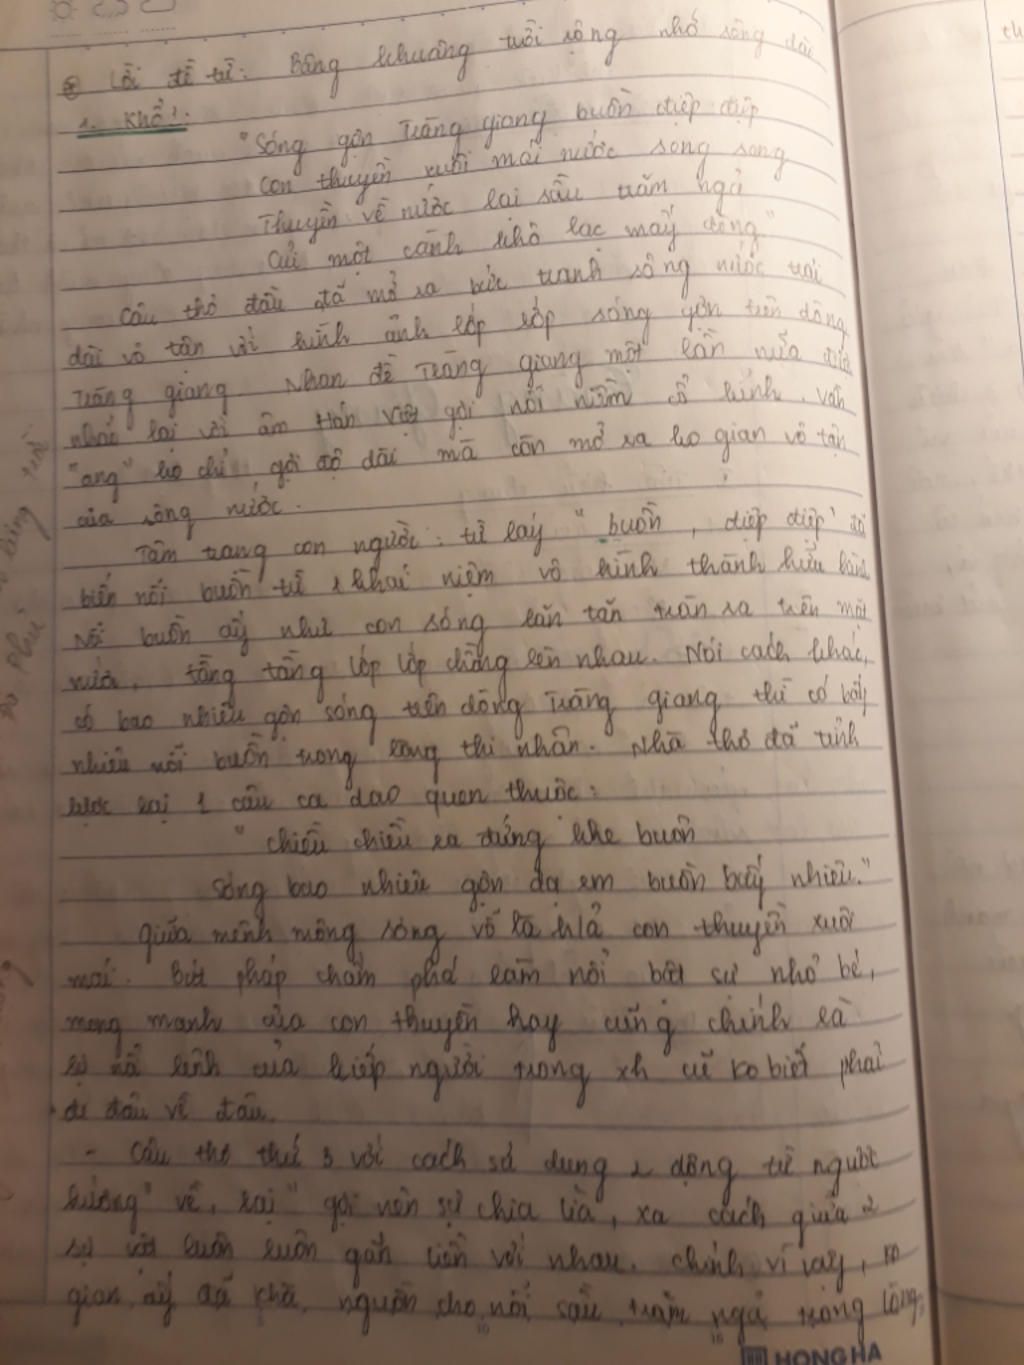 Lời đề từ: Bâng khuâng trời rộng nhớ sông dài
1. Khổ 1:
"Sóng gợn Tràng giang buồn điệp điệp
Con thuyền xuôi mái nước song song
Thuyền về nước lại sầu trăm ngả
Củi một cành khô lạc mấy dòng"
Câu thơ đầu đã mở ra bức tranh sông nước trải
dài vô tận với hình ảnh lớp lớp sóng gợn trên dòng
Tràng giang. Nhan đề Tràng giang một lần nữa được
nhắc lại với âm Hán Việt gợi nỗi niềm cổ kính. vần
"ang" ko chỉ gợi độ dài mà còn mở ra ko gian vô tận
của sông nước.
Tâm trạng con người: từ láy "buồn, điệp điệp" đã
biến nỗi buồn từ 1 khái niệm vô hình thành hữu hình
Nỗi buồn ấy như con sóng lăn tăn tràn ra trên mặt
nước, tầng tầng lớp lớp chồng lên nhau. Nói cách khác,
có bao nhiêu gợn sóng trên dòng Tràng giang thì có bấy
nhiêu nỗi buồn trong lòng thi nhân. Nhà thơ đã tỉnh
lược lại 1 câu ca dao quen thuộc:
"Chiều chiều ra đứng khe buồn
Sóng bao nhiêu gợn dạ em buồn bấy nhiêu."
Giữa mênh mông sóng vỗ là h/ả con thuyền xuôi
mái. Bút pháp chấm phá làm nổi bật sự nhỏ bé,
mong manh của con thuyền hay cũng chính là
sự nổi lênh của kiếp người trong xh cũ ko biết phải
đi đâu về đâu.
- Câu thơ thứ 3 với cách sử dụng 2 động từ ngược
hướng "về, lại" gợi nên sự chia lìa, xa cách giữa 2
sự vật luôn luôn gắn liền với nhau. Chính vì vậy, ko
gian ấy đã khơi nguồn cho nỗi sầu trăm ngả trong lòng
HONG HA